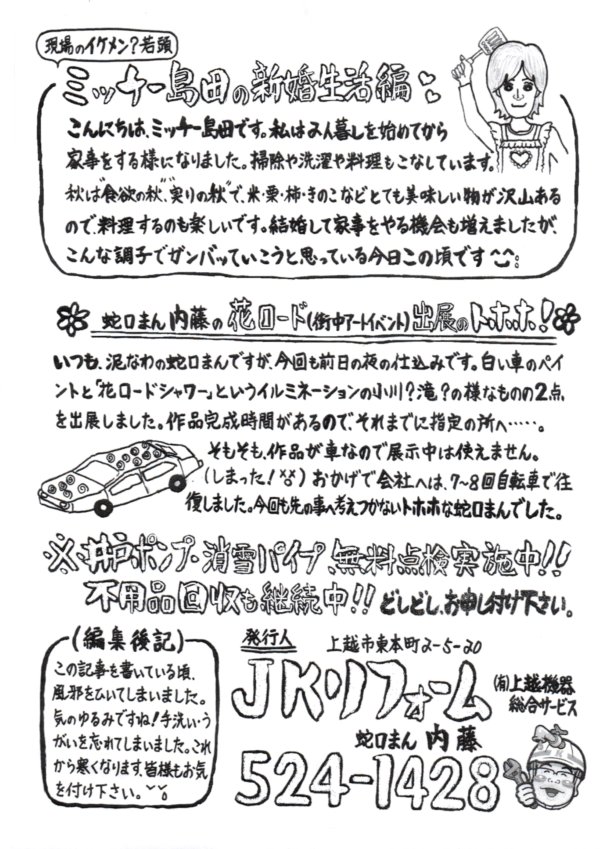 現場のイケメン?若頭
ミッチー島田の新婚生活編♡
こんにちは、ミッチー島田です。私は2人暮しを始めてから
家事をする様になりました。掃除や洗濯や料理もこなしています。
秋は"食欲の秋"、"実りの秋"で、米・栗・柿・きのこなどとても美味しい物が沢山ある
ので、料理するのも楽しいです。結婚して家事をやる機会も増えましたが、
こんな調子でガンバッていこうと思っている今日この頃です
蛇口まん内藤の花ロード(街中アートイベント)出展のトホホ!
いつも、泥なわの蛇口まんですが、今回も前日の夜の仕込みです。白い車のペイ
ントと「花ロードシャワー」というイルミネーションの小川?滝?の様なものの2点
を出展しました。作品完成時間があるので、それまでに指定の所へ……。
そもそも、作品が車なので展示中は使えません。
(しまった!)おかげで会社へは、7~8回自転車で往
復しました。今回も先の事へ考えつかないトホホな蛇口まんでした。
※井戸ポンプ・消雪パイプ、無料点検実施中!!
不用品回収も継続中!!どしどし、お申し付け下さい。
(編集後記)
この記事を書いている頃、
風邪をひいてしまいました。
気のゆるみですね!手洗い・う
がいを忘れてしまいました。これ
から寒くなります、皆様もお気
を付け下さい。
発行人
上越市東本町2-5-20
JKリフォーム
(有)上越機器
総合サービス
蛇口まん 内藤
524-1428